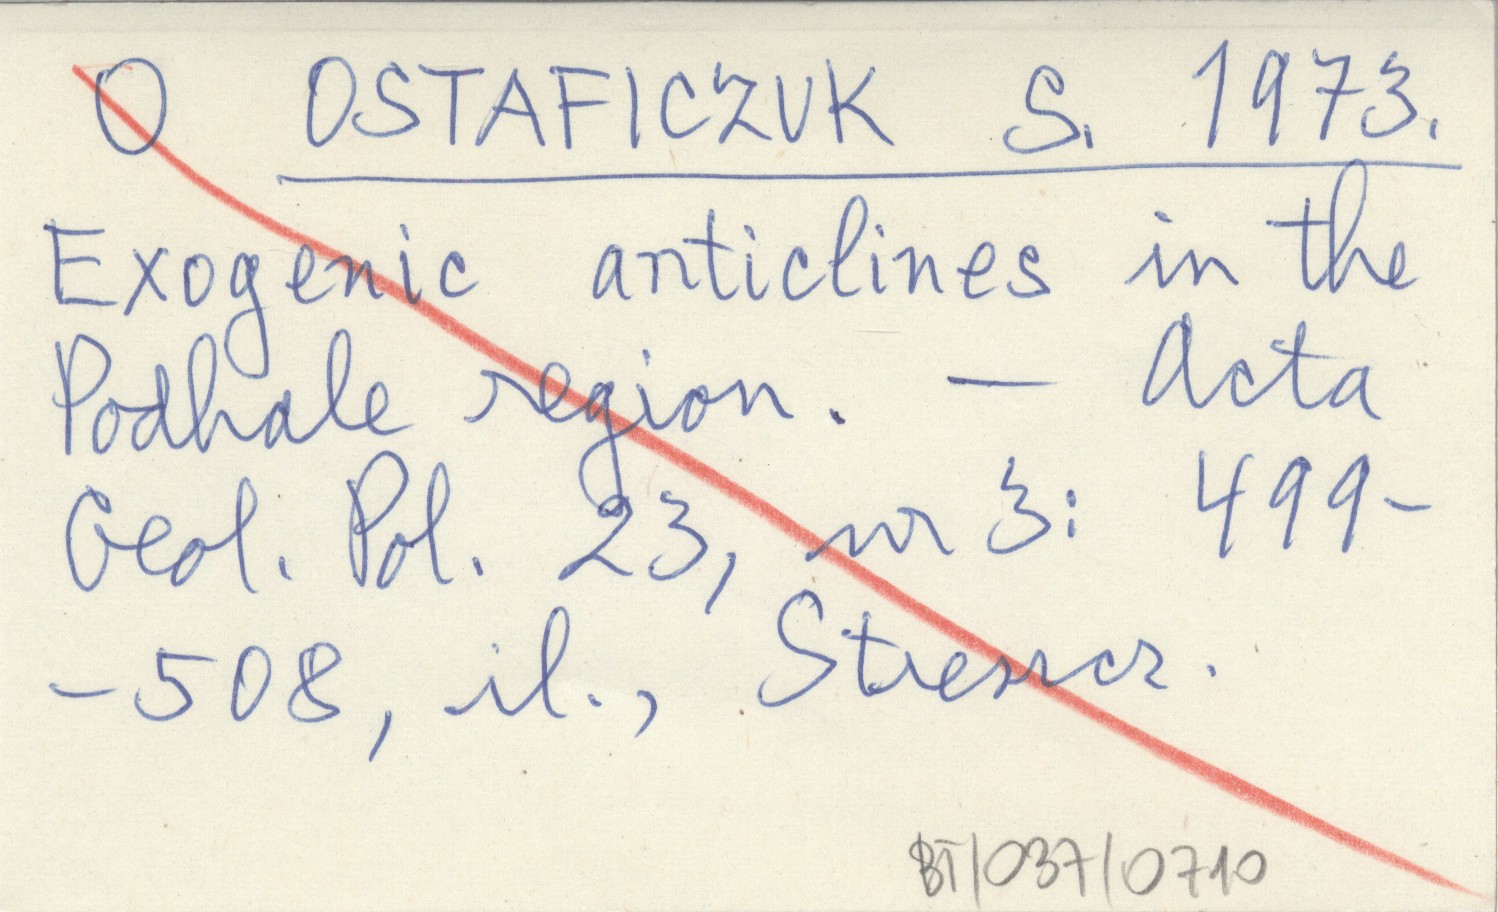 O OSTAFICZUK S. 1973.
Exogenic anticlines in the
Podhale region. — Acta
Geol. Pol. 23, nr 3: 499-
-508, il., Streszcz.
BT/037/0710